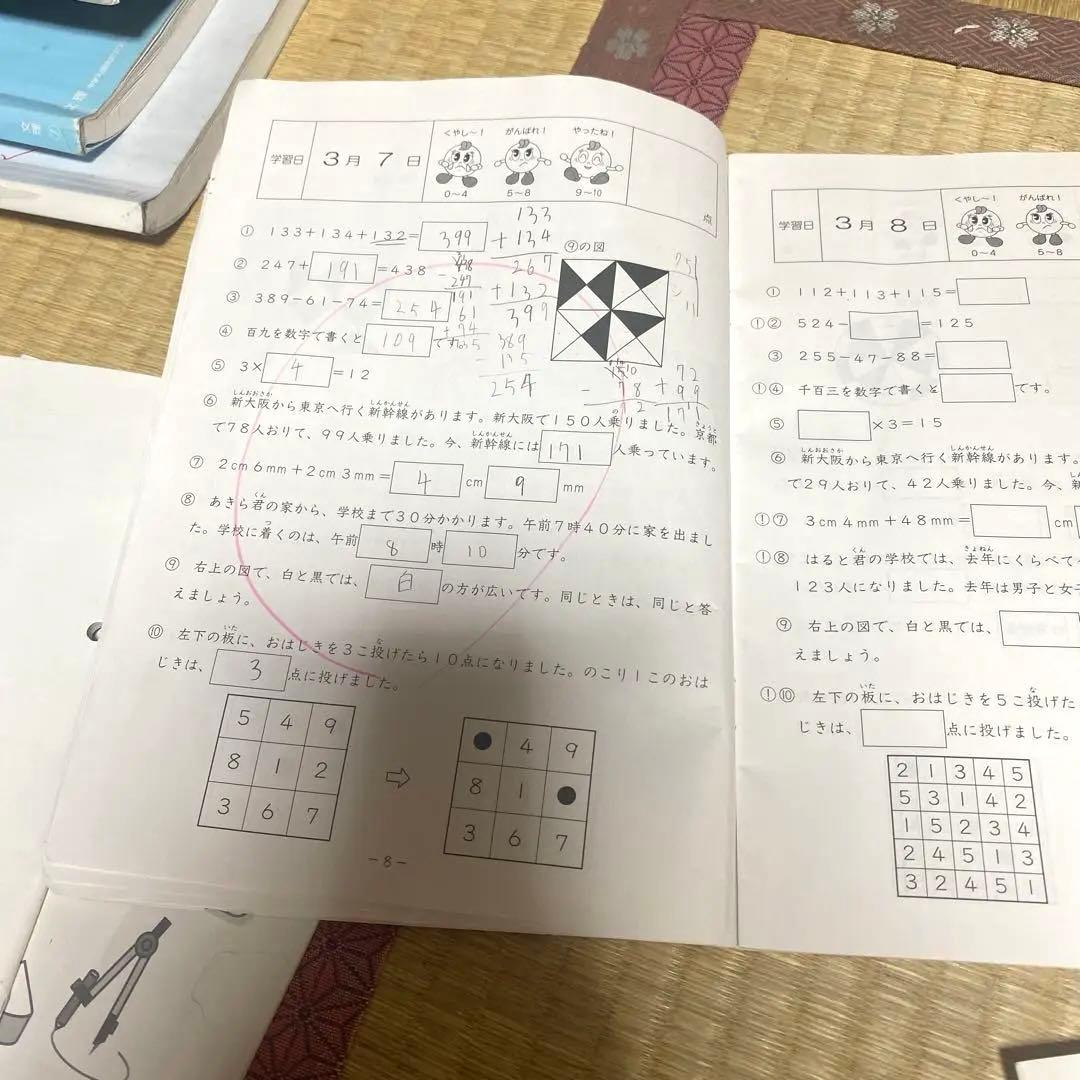 学習日
3月7日
くやし〜！
がんばれ！
やったね！
0〜4
5〜8
9〜10
点
① 133+134+132= 399
② 247+ 191 =438
③ 389-61-74= 254
④ 百九を数字で書くと 109 です。
⑤ 3× 4 =12
133
+134
267
+132
399
438
-247
191
61
+74
389
254
⑨の図
751
11
- 78
72
+ 99
171
⑥ 新大阪から東京へ行く新幹線があります。新大阪で150人乗りました。京都
しんおおさか
しんかんせん
の
きょうと
で78人おりて、99人乗りました。今、新幹線には 171 人乗っています。
しんかんせん
⑦ 2cm6mm+2cm3mm= 4 cm 9 mm
⑧ あきら君の家から、学校まで30分かかります。午前7時40分に家を出まし
くん
た。学校に着くのは、午前 8 時 10 分です。
つ
⑨ 右上の図で、白と黒では、 白 の方が広いです。同じときは、同じと答
えましょう。
⑩ 左下の板に、おはじきを3こ投げたら10点になりました。のこり1このおは
いた
な
じきは、 3 点に投げました。
5 4 9
8 1 2
3 6 7
⇨
● 4 9
8 1 ●
3 6 7
-8-
学習日
3月8日
くやし〜！
がんばれ！
0〜4
5〜8
① 112+113+115=
!② 524- =125
③ 255-47-88=
!④ 千百三を数字で書くと です。
⑤ ×3=15
⑥ 新大阪から東京へ行く新幹線があります。
しんおおさか
しんかんせん
で29人おりて、42人乗りました。今、新
!⑦ 3cm4mm+48mm= cm
!⑧ はると君の学校では、去年にくらべて
くん
きょねん
123人になりました。去年は男子と女子
⑨ 右上の図で、白と黒では、
えましょう。
!⑩ 左下の板に、おはじきを5こ投げた
いた
な
じきは、 点に投げました。
2 1 3 4 5
5 3 1 4 2
1 5 2 3 4
2 4 5 1 3
3 2 4 5 1